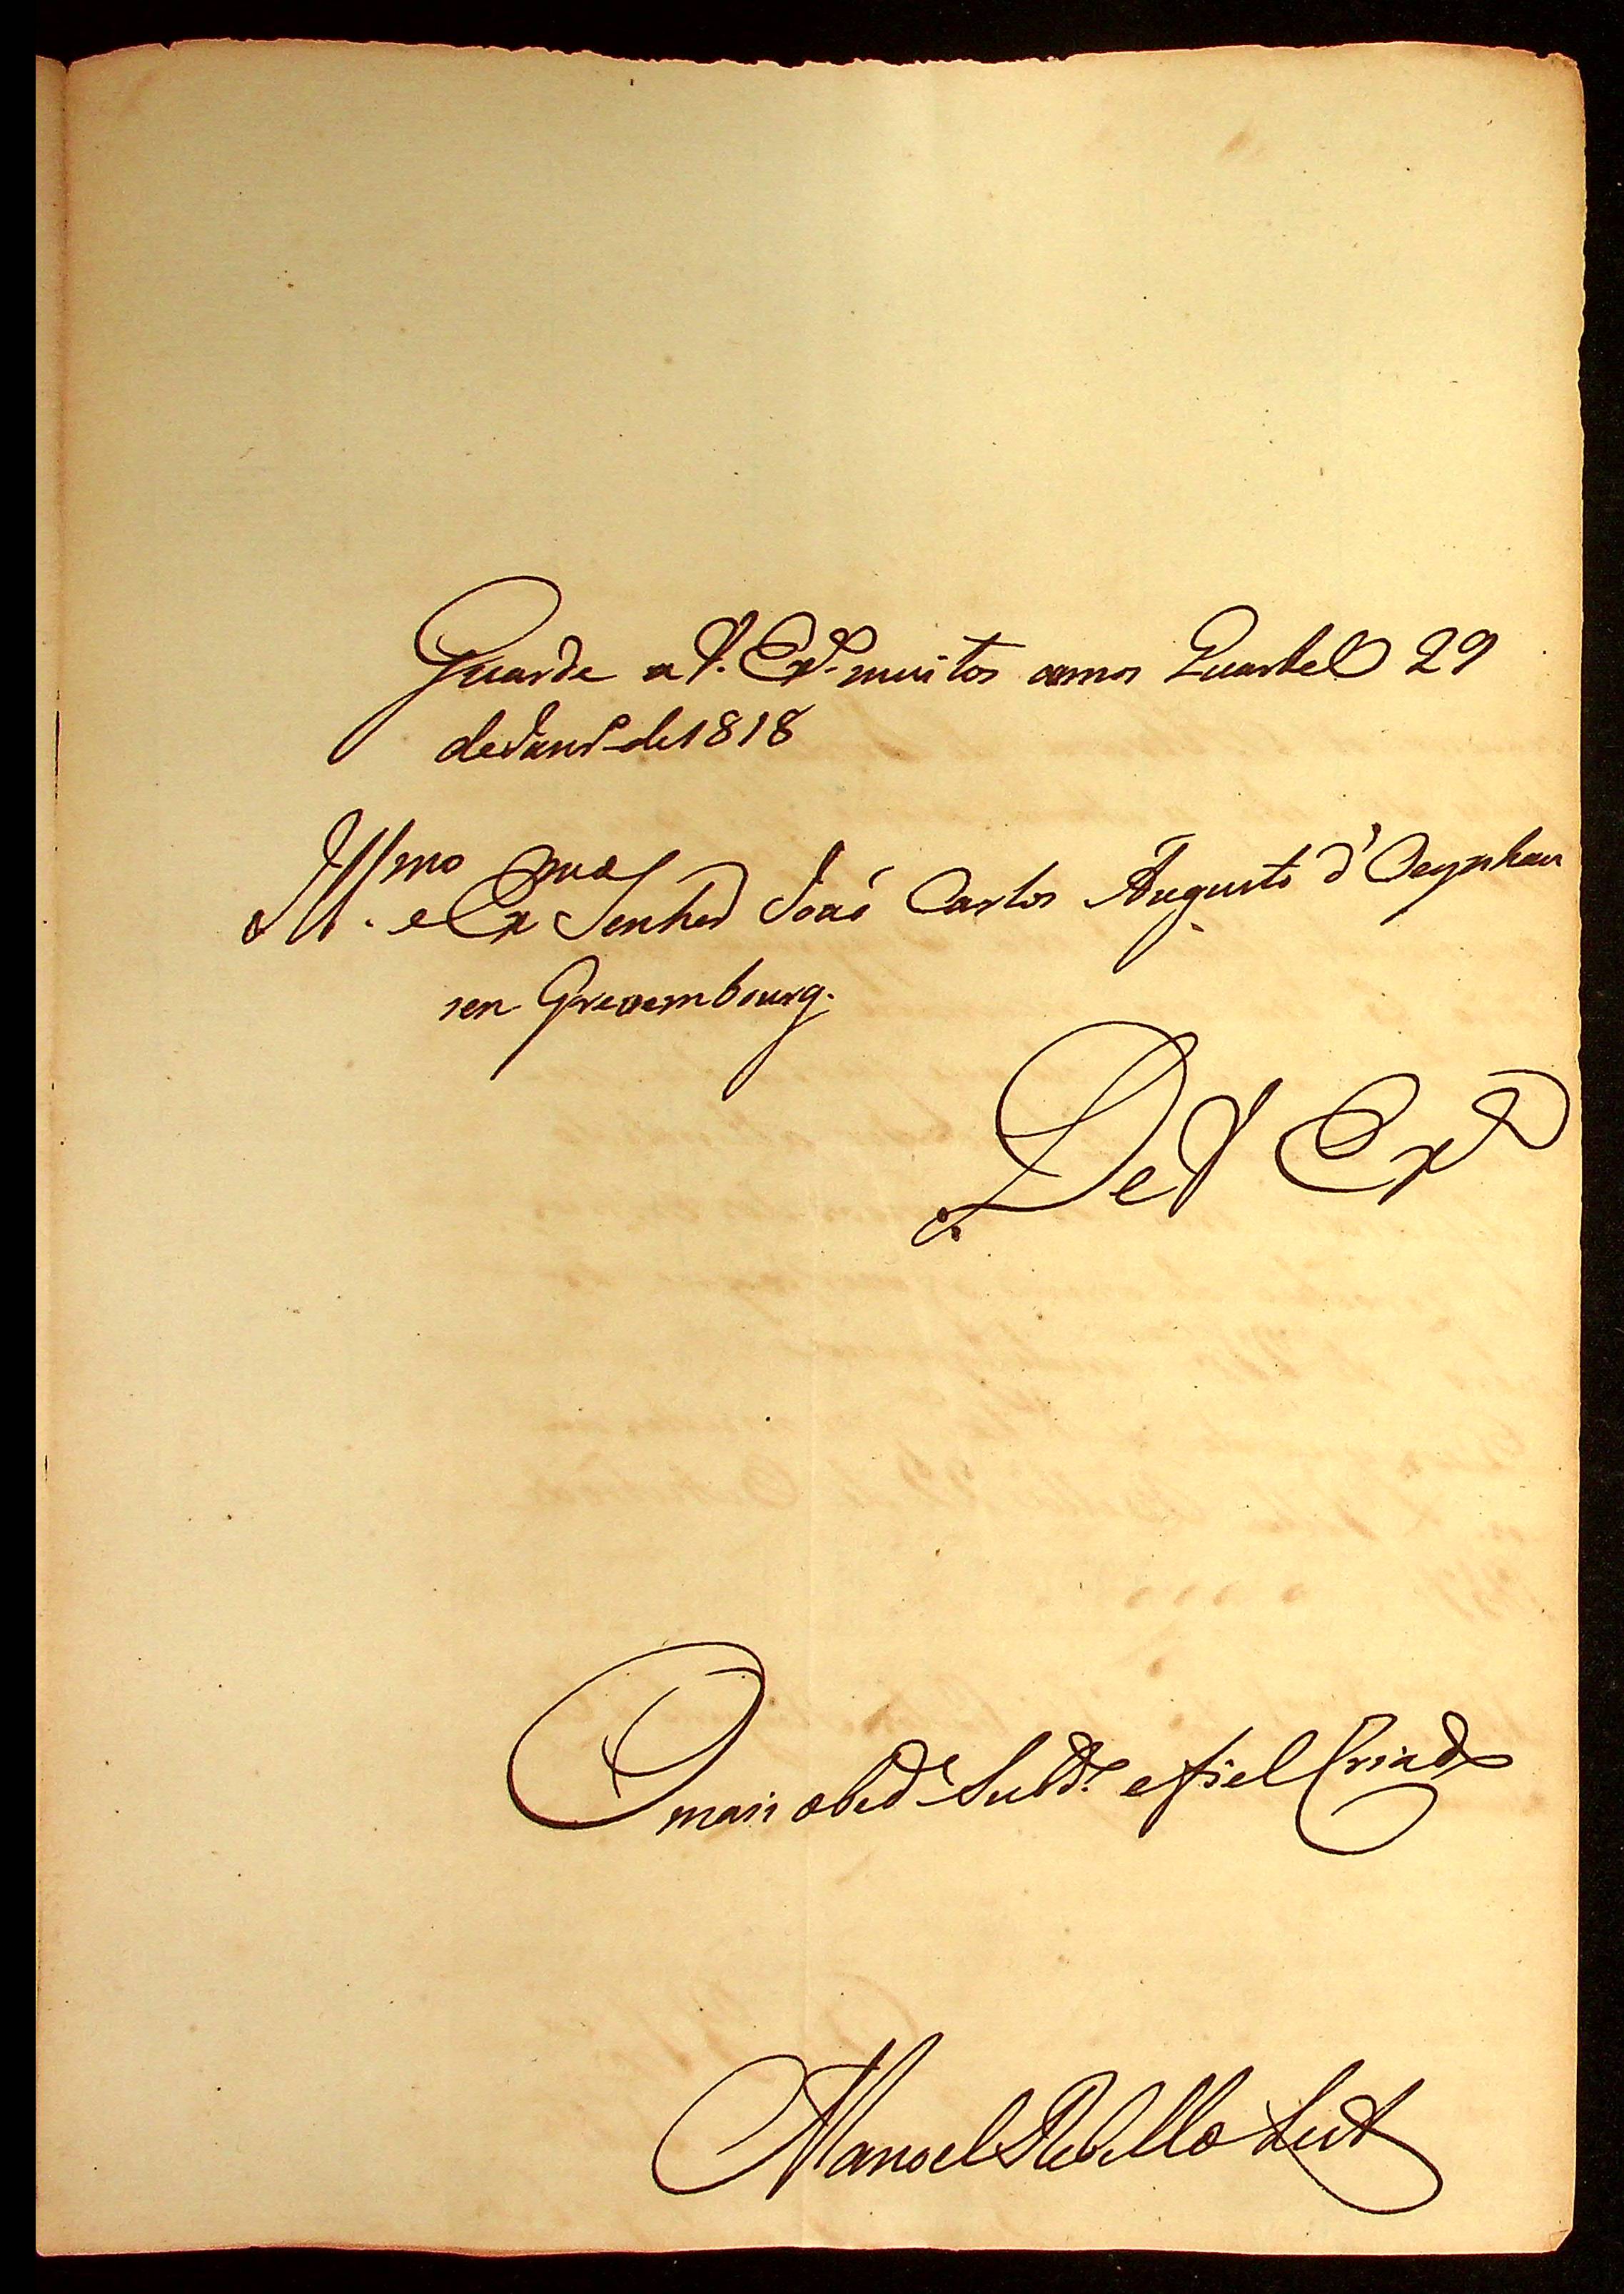 Guarde a V. Exª muitos annos Quartel 29
de Janrº de 1818
Illmo. e Exmo Senhor João Carlos Augusto d'Oeynhau
sen Grevembourg.
De V Exª
O mais obedᵉ Subdº e fiel Criado
Manoel Rebello Leite